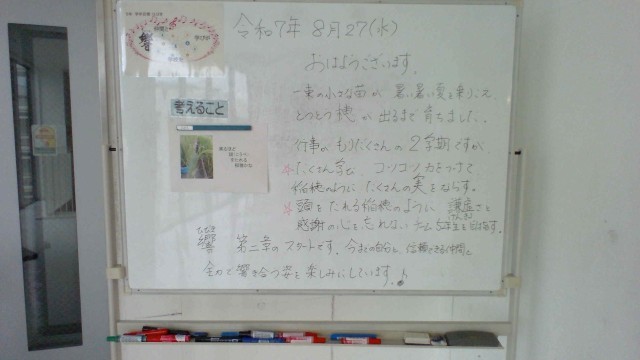 響
令和7年 8月27(水)
おはようございます。
一束の小さな苗が 暑い暑い夏を乗りこえ、
とうとう穂が出るまで育ちました。
考えること
行事がもりだくさんの2学期ですが
☆たくさん学び、コツコツ力をつけて
稲穂のように たくさんの実をならす。
☆頭をたれる稲穂のように 謙虚さと
けんきょ
感謝の心を忘れない 5年生を目指す。
ひびき
響 第二章のスタートです。今までの自分と、信頼できる仲間と
全力で響き合う姿を楽しみにしています。♪